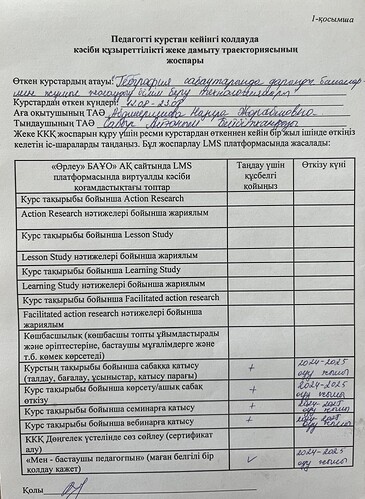 1-қосымша
Педагогті курстан кейінгі қолдауда
кәсіби құзыреттілікті жеке дамыту траекториясының
жоспары
Өткен курстардың атауы: География сабақтарында дарынды балалар-
мен жұмыс жасаудың білім беру технологиялары
Курстардан өткен күндері:
Аға оқытушының ТАӘ
Тыңдаушының ТАӘ
Жеке ККҚ жоспарын құру үшін ресми курстардан өткеннен кейін бір жыл ішінде өткіңіз
келетін іс-шараларды таңдаңыз. Бұл жоспарлау LMS платформасында жасалады:
«Өрлеу» БАҰО» АҚ сайтында LMS платформасында виртуалды кәсіби қоғамдастықтағы топтар | Таңдау үшін құсбелгі қойыңыз | Өткізу күні
Курс тақырыбы бойынша Action Research
Action Research нәтижелері бойынша жариялым
Курс тақырыбы бойынша Lesson Study
Lesson Study нәтижелері бойынша жариялым
Курс тақырыбы бойынша Learning Study
Learning Study нәтижелері бойынша жариялым
Курс тақырыбы бойынша Facilitated action research
Facilitated action research нәтижелері бойынша
жариялым
Көшбасшылық (көшбасшы топты ұйымдастырады
және әріптестеріне, бастаушы мұғалімдерге және
т.б. көмек көрсетеді)
Курстың тақырыбы бойынша сабаққа қатысу (талдау, бағалау, ұсыныстар, қатысу парағы) | + | 2024-2025 оқу жылы
Курс тақырыбы бойынша көрсету/ашық сабақ өткізу | + | 2024-2025 оқу жылы
Курс тақырыбы бойынша семинарға қатысу | + | 2024-2025 оқу жылы
Курс тақырыбы бойынша вебинарға қатысу | + | 2024-2025 оқу жылы
ККҚ Дөңгелек үстелінде сөз сөйлеу (сертификат
алу)
«Мен - бастаушы педагогпын» (маған белгілі бір қолдау қажет) | ✓ | 2024-2025 оқу жылы
Қолы